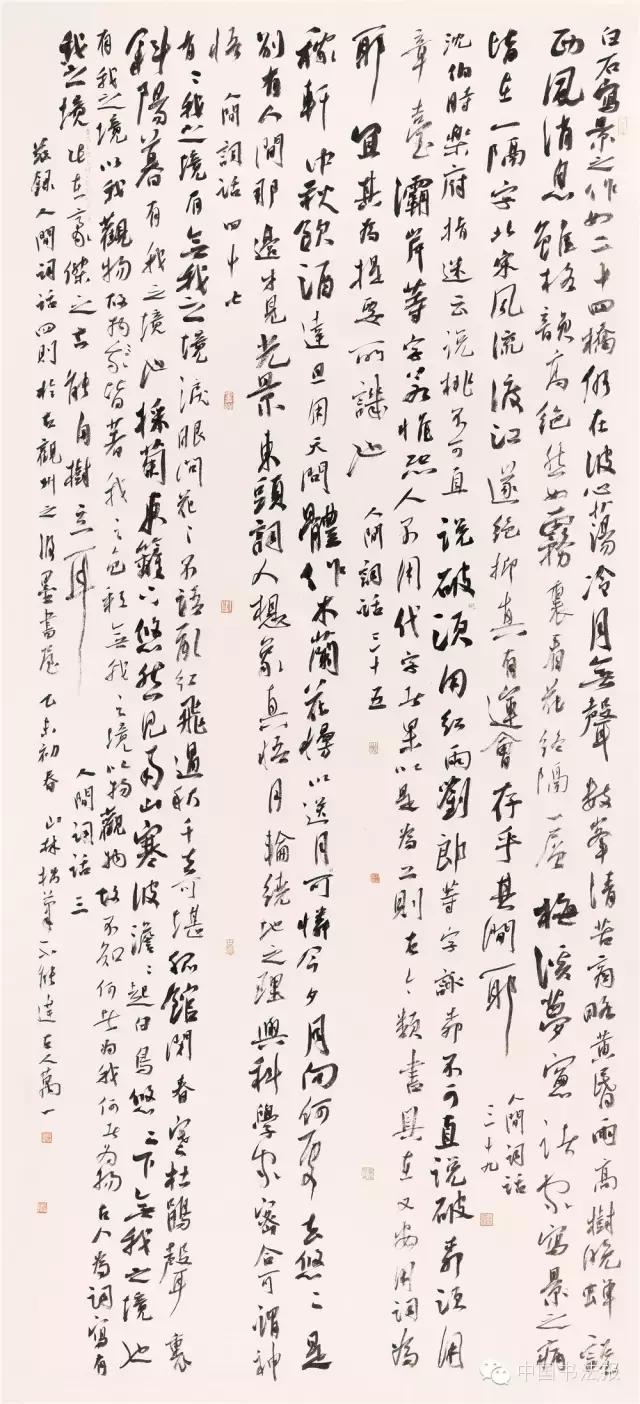 白石寫景之作如二十四橋仍在波心蕩冷月無聲數峯清苦商略黃昏雨高樹晚蟬說
西風消息雖格韻高絕然如霧裏看花終隔一層梅溪夢窗諸家寫景之病
皆在一隔字北宋風流渡江遂絕抑真有運會存乎其間耶
人間詞話
三十九
沈伯時樂府指迷云說桃不可直說破須用紅雨劉郎等字詠柳不可直說破柳須用
章臺灞岸等字若惟恐人不用代字者果以是為工則古今類書具在又安用詞為
耶宜其為提要所譏也 人間詞話三十五
稼軒中秋飲酒達旦用天問體作木蘭花慢以送月可憐今夕月向何處去悠〻是
別有人間那邊才見光景東頭詞人想象直悟月輪繞地之理與科學家密合可謂神
悟 人間詞話四十七
有〻我之境有無我之境淚眼問花〻不語亂紅飛過秋千去可堪孤館閉春寒杜鵑聲裏
斜陽暮有我之境也採菊東籬下悠然見南山寒波澹〻起白鳥悠〻下無我之境也
有我之境以我觀物故物皆著我之色彩無我之境以物觀物故不知何者為我何者為物古人為詞寫有
我之境 在豪傑之士能自樹立耳 人間詞話三
敬錄人間詞話四則於古觀州之墨書屋乙未初春山林拙筆不能達古人萬一
中国书法报